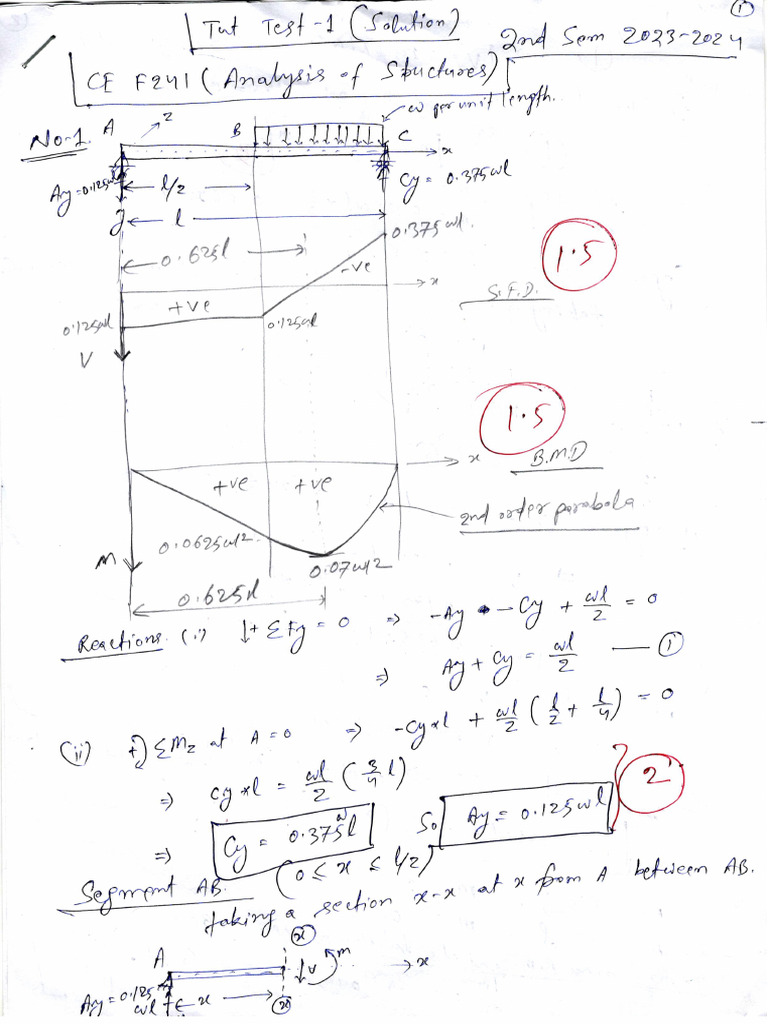 ①
Tut Test-1 (Solution)
2nd Sem 2023-2024
CE F241 (Analysis of Structures)
w per unit length.
No-1. A z B C x
Ay=0.125wl l/2 Cy= 0.375wl
y l
0.375wl.
0.625l 1.5
-ve
+ve x S.F.D.
0.125wl 0.125wl
V
1.5
x B.M.D
+ve +ve
2nd order parabola
0.0625wl2
M 0.07wl2
0.625l
Reactions. (i) ↓+ ΣFy = 0 ⇒ -Ay - Cy + wl/2 = 0
⇒ Ay + Cy = wl/2 — ①
(ii) +) ΣMz at A=0 ⇒ -Cy×l + wl/2 (l/2 + l/4) = 0
⇒ Cy×l = wl/2 (3/4 l)
2
⇒ Cy = 0.375wl So Ay = 0.125wl
Segment AB. (0 ≤ x ≤ l/2)
taking a section x-x at x from A between AB.
A ⓧ V M x
Ay=0.125wl x ⓧ